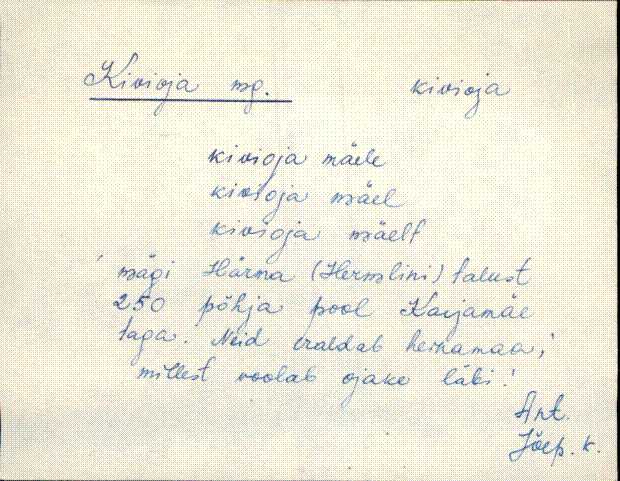 Kivioja mg. kivioja
kivioja mäele
kivioja mäel
kivioja mäelt
' mägi Härma (Hermlini) talust
250 põhja pool Karjamäe
taga. Neid eraldab heinamaa,
millest voolab ojake läbi.'
Ant.
Jõep. k.